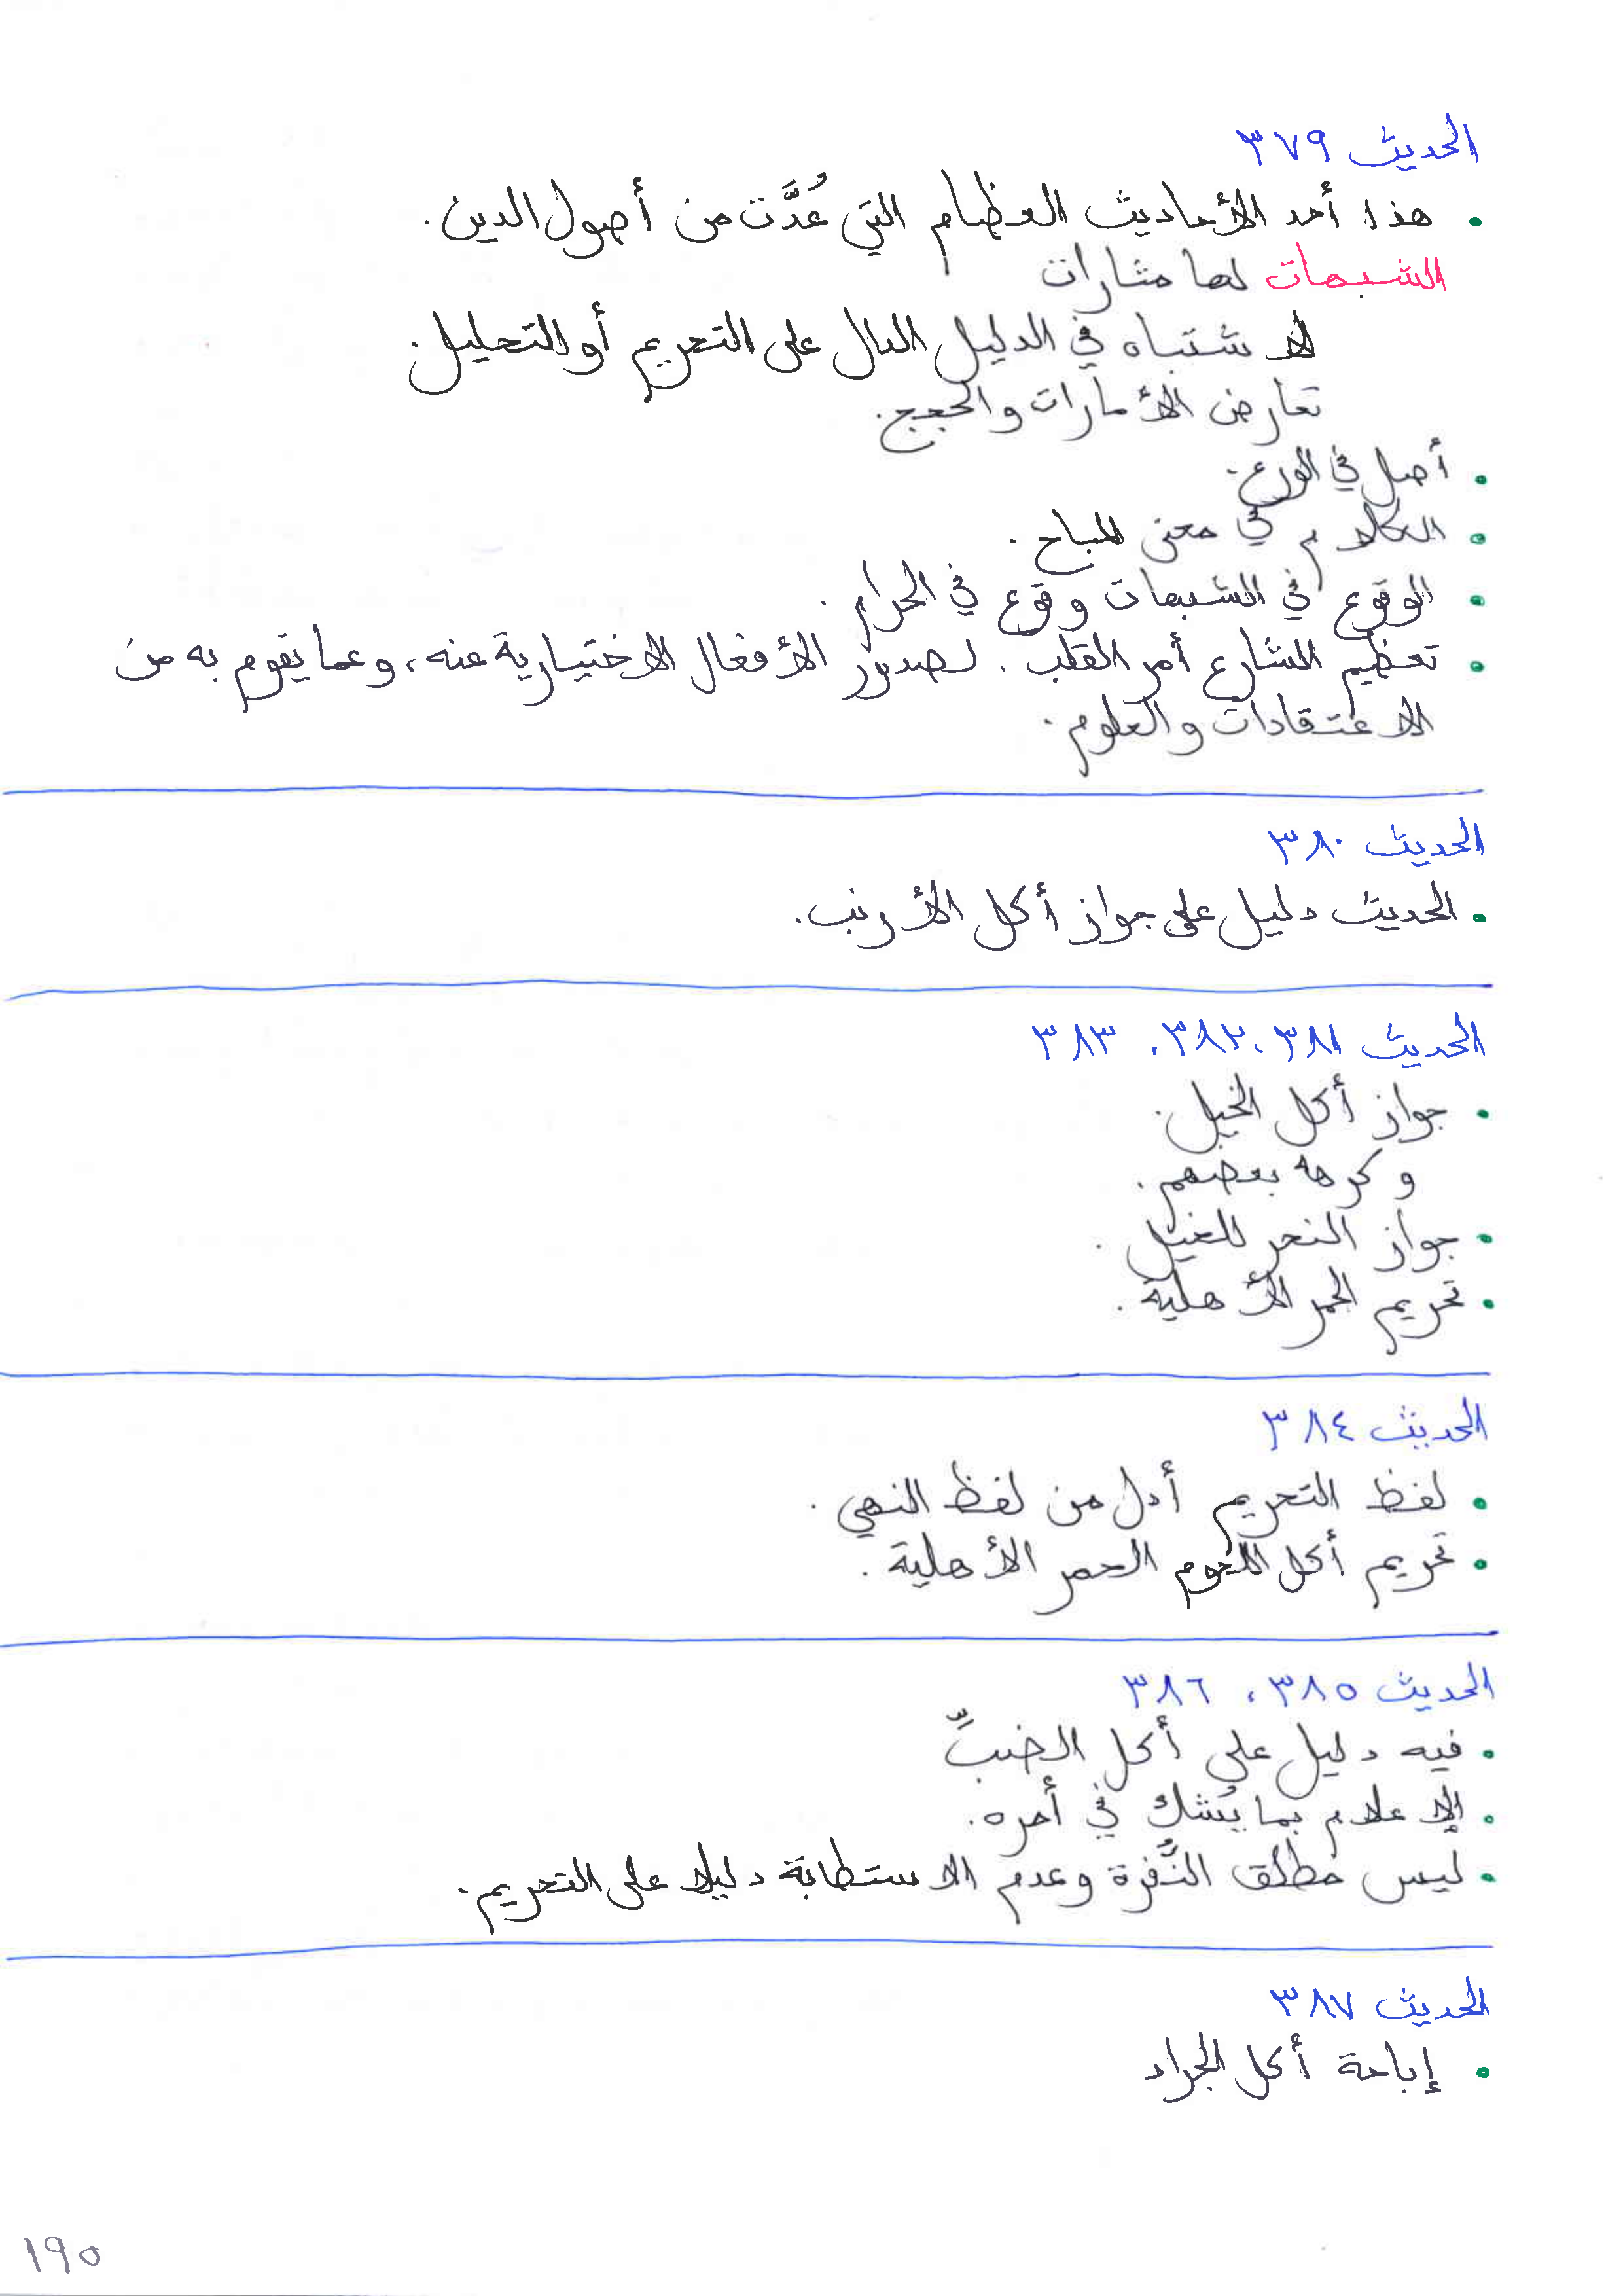 الحديث ٣٧٩
• هذا أحد الأحاديث العظام التي عُدَّت من أصول الدين.
الشبهات لها مثارات
الاشتباه في الدليل الدال على التحريم أو التحليل.
تعارض الأمارات والحجج.
• أصل في الورع.
• الكلام في معنى المباح.
• الوقوع في الشبهات وقوع في الحرام.
• تعظيم الشارع أمر القلب. لصدور الأفعال الاختيارية عنه، وعما يقوم به من
الاعتقادات والعلوم.
الحديث ٣٨٠
• الحديث دليل على جواز أكل الأرنب.
الحديث ٣٨١، ٣٨٢، ٣٨٣
• جواز أكل الخيل.
وكرهه بعضهم.
• جواز النحر للخيل.
• تحريم الحمر الأهلية.
الحديث ٣٨٤
• لفظ التحريم أدل من لفظ النهي.
• تحريم أكل اللحوم الحمر الأهلية.
الحديث ٣٨٥، ٣٨٦
• فيه دليل على أكل الضبِّ
• الإعلام بما يُشك في أمره.
• ليس مطلق النَّفرة وعدم الاستطابة دليلا على التحريم.
الحديث ٣٨٧
• إباحة أكل الجراد
١٩٥